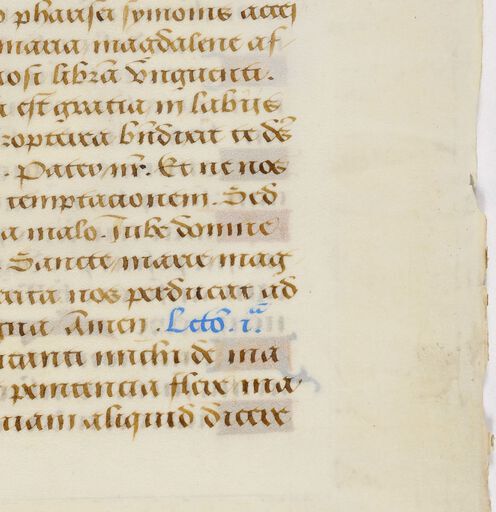 pharisei symonis acces
maria magdalene af
libra͞ vnguenti.
est gratia in labijs
propterea b͞ndixit te de͞s
. Pater nr͞. Et ne nos
temptacionem. Sed
a malo. Iube domne
. Sancte marie mag
nos perducat ad
Amen. Lctō. i.ᵃ
michi de ma
penitencia flere ma
aliquid dicere